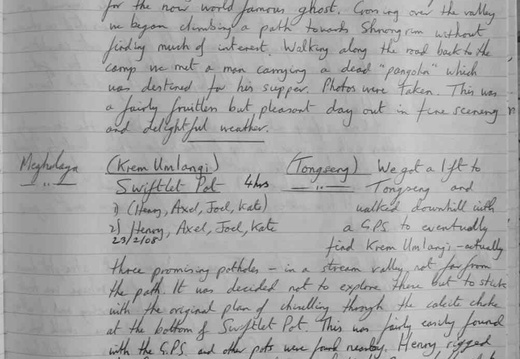 for the now world famous ghost. Crossing over the valley
we began climbing a path towards Shnongrim without
finding much of interest. Walking along the road back to the
camp we met a man carrying a dead "pangolin" which
was destined for his supper. Photos were taken. This was
a fairly fruitless but pleasant day out in fine scenery
and delightful weather.
Meghalaya (Krem Umlangi) (Tongseng) We got a lift to
Swiftlet Pot 4hrs — " — Tongseng and
1) (Henry, Axel, Joel, Kate) walked downhill with
2) Henry, Axel, Joel, Kate a GPS to eventually
23/2/08 find Krem Umlangi - actually
three promising potholes - in a stream valley, not far from
the path. It was decided not to explore these but to stick
with the original plan of chiselling through the calcite choke
at the bottom of Swiftlet Pot. This was fairly easily found
with the G.P.S. and other pots were found nearby. Henry rigged